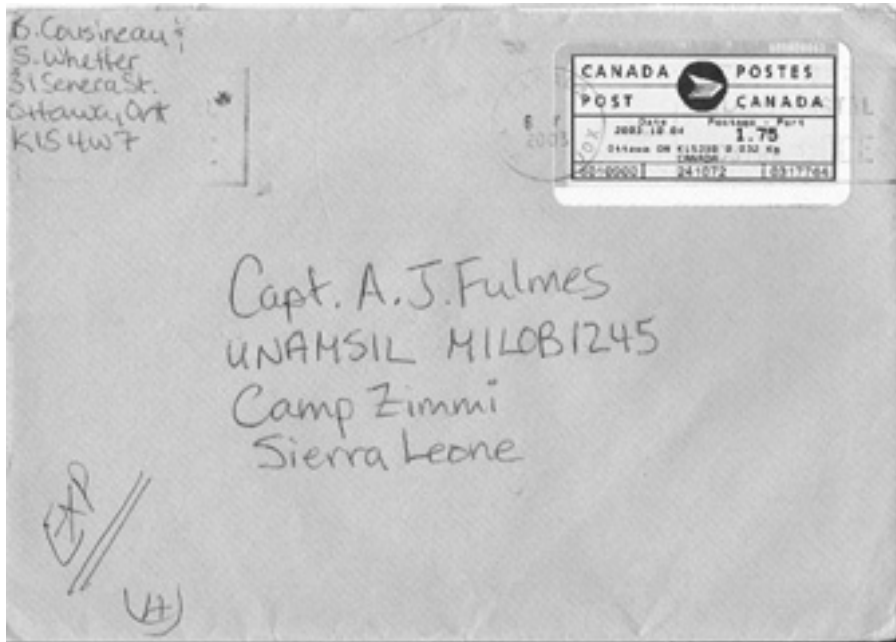 B. Cousineau &
S. Whetter
31 Senera St.
Ottaway, Ont
K1S 4W7
CANADA POSTES
POST CANADA
Date Postage - Port
2003.10.04 1.75
Ottawa ON 0.032 Kg
CANADA
241072 0317764
2003
Capt. A. J. Fulmes
UNAMSIL MILOB1245
Camp Zimmi
Sierra Leone
EXP